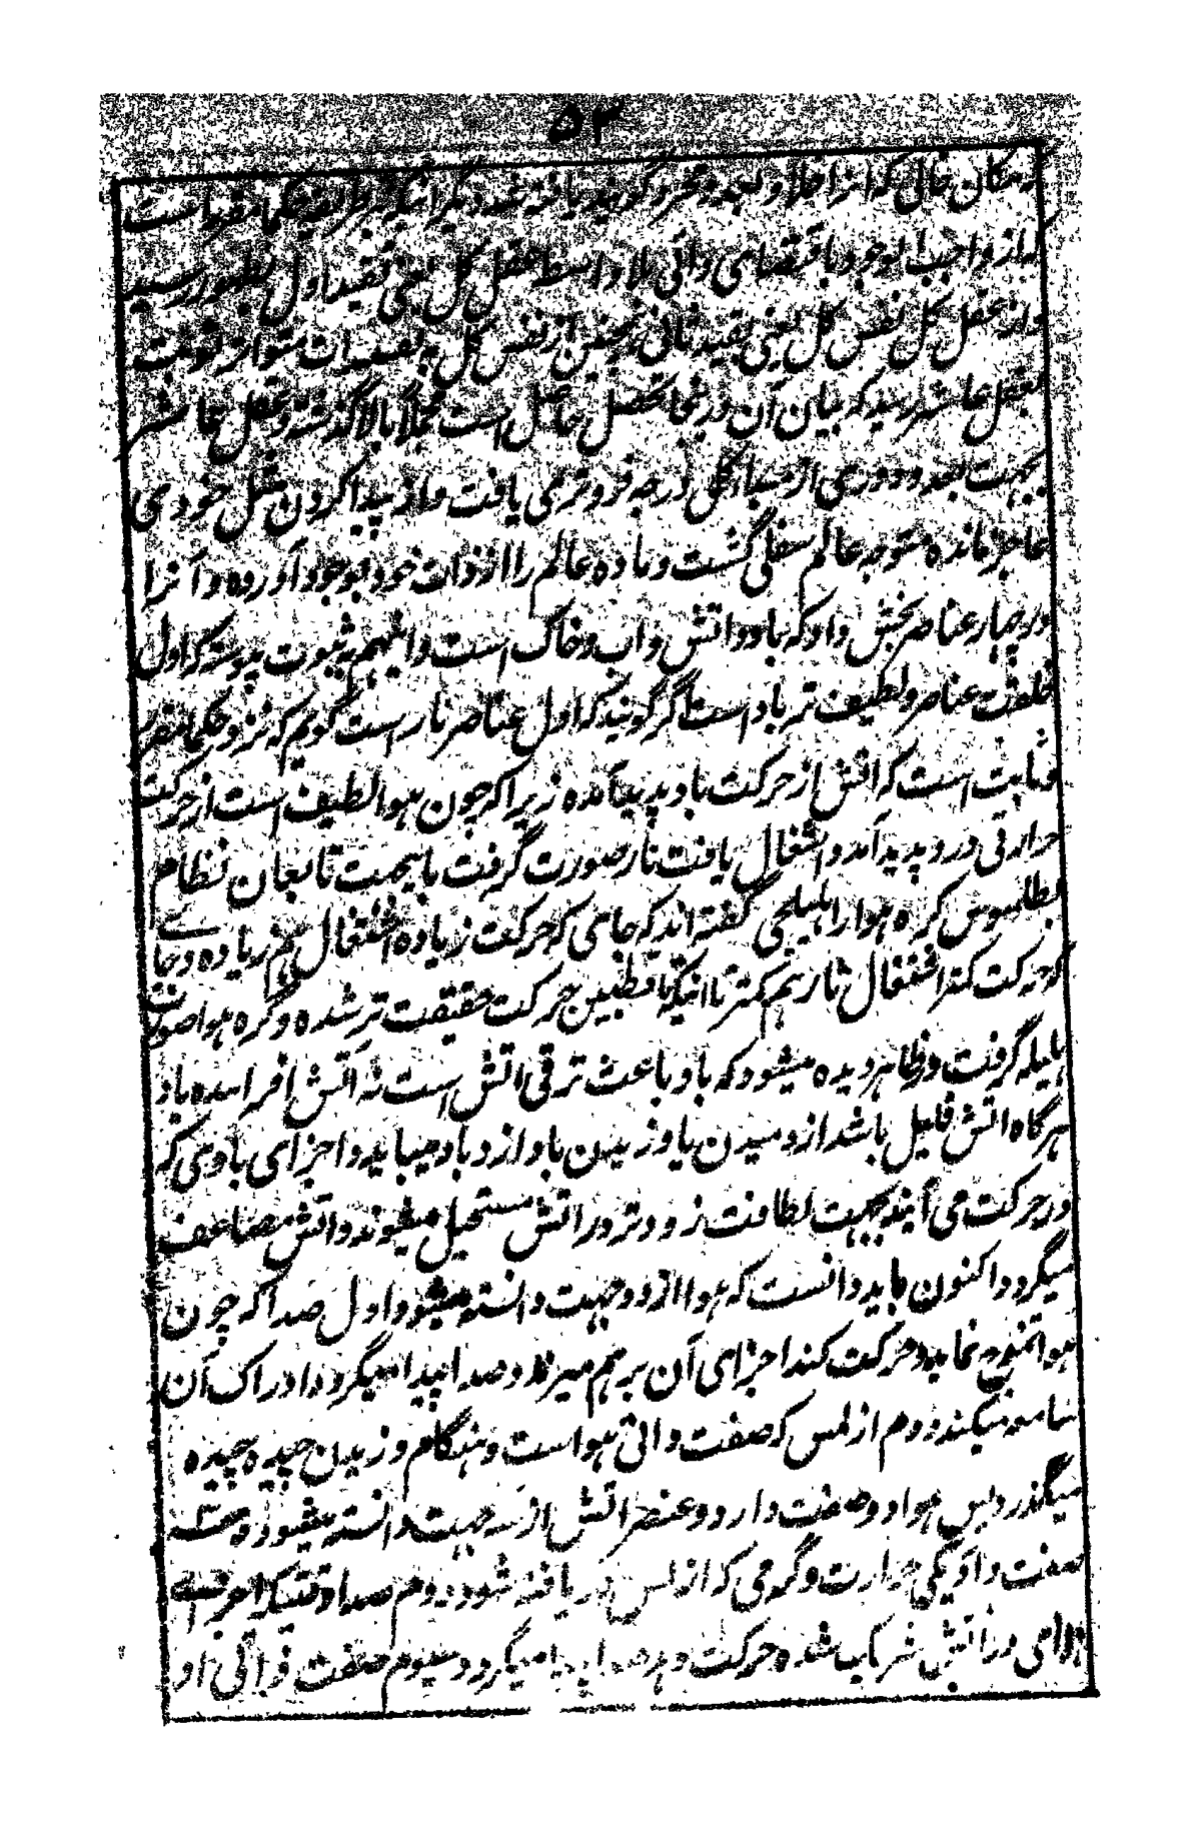 ۵۳
مکان خالی که انرا خلا و بعد مجرد گویند یافته شد دیگر آنیکه بطریقه حکما مقرر است
که از واجب الوجود باقتضای ذاتی بلا واسطه عقل کل یعنی تقید اول بظهور رسید
و از عقل کل نفس کل یعنی تقید ثانی همچنین از نفس کل به تعینات متواتر نوبت
بعقل عاشر رسید که بیان آن درینجا تحصیل حاصل است مجملاً بالا گذشته و عقل عاشر
بجهت بعد و دوری از مبداء کل درجه فروتر می یافت و از پیدا کردن مثل خودی
عاجز مانده متوجه عالم سفلی گشت و ماده عالم را از ذات خود بوجود آورده و آنرا
در چهار عناصر بخش داد که باد و اتش و آب و خاک است و اینهم به ثبوت پیوسته که اول
خلقت عناصر و لطیف تر باد است اگر گویند که اول عناصر نار است گویم که نزد حکما مقرر
و ثابت است که اتش از حرکت باد پدید آمده زیرا که چون هوا لطیف است از حرکت
حرارتی درو پدید آمد و اشتغال یافت نار صورت گرفت باینجهت تابعان نظام
بطلمیوس کره هوا را اهلیلجی گفته اند که جای که حرکت زیاده اشتغال هم زیاده و جای
که حرکت کمتر اشتغال نار هم کمتر تا اینکه تا قطبین حرکت حقیقت تر شده و کره هوا صورت
هلیله گرفت و ظاهر دیده میشود که باد باعث ترقی اتش است نه آتش افراینده باد
هرگاه اتش قلیل باشد از دمیدن یا وزیدن باد ازدیاد میباید و اجزای بادی که
در حرکت می آیند بجهت لطافت زودتر در اتش مستحیل میشوند و اتش مضاعف
میگردد اکنون باید دانست که هوا از دو جهت دانسته میشود اول صدا که چون
هوا تموج نماید و حرکت کند اجزای آن برهم میزند و صدا پیدا میگردد ادراک آن
سامعه میکند دوم از لمس که صفت ذاتی هوا است و هنگام وزیدن چیده چیده
میگذرد پس هوا دو صفت دارد و عنصر اتش از سه جهت دانسته میشود و سه
صفت دارد یکی حرارت و گرمی که از لمس دریافته شود دوم صدا وقتیکه اجزای
هوای در آتش شریک شده حرکت دهد صدا پیدا میگردد سیوم صفت ذاتی او